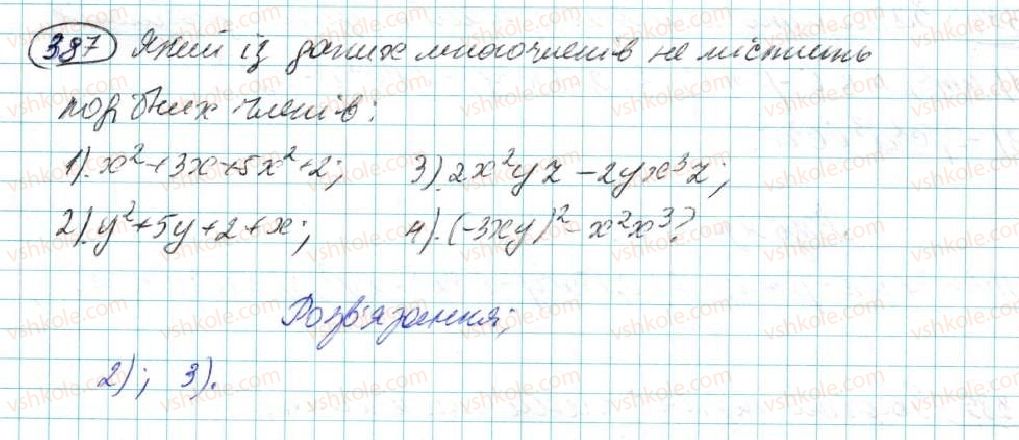 387 Який із даних многочленів не містить
подібних членів:
1). x²+3x+5x²+2; 3) 2x²yz-2yx³z;
2). y²+5y+2+x; 4). (-3xy)²-x²x³?
Розв'язання;
2); 3).